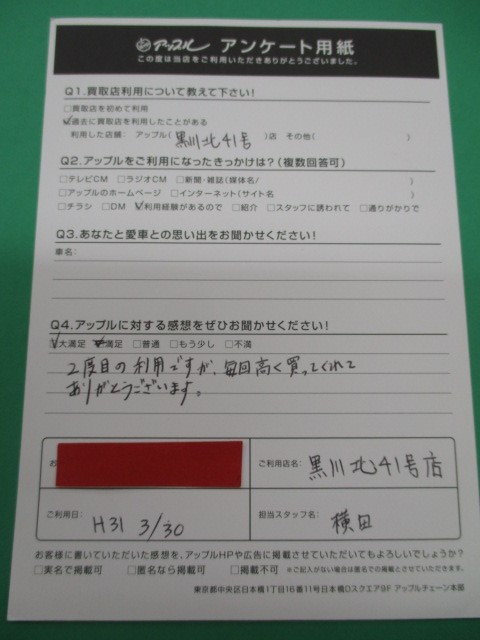 アップル アンケート用紙
この度は当店をご利用いただきありがとうございました。
Q1.買取店利用について教えて下さい!
□買取店を初めて利用
☑過去に買取店を利用したことがある
利用した店舗: アップル(黒川北41号)店 その他( )
Q2.アップルをご利用になったきっかけは?(複数回答可)
□テレビCM □ラジオCM □新聞・雑誌(媒体名/ )
□アップルのホームページ □インターネット(サイト名 )
□チラシ □DM ☑利用経験があるので □紹介 □スタッフに誘われて □通りがかりで
Q3.あなたと愛車との思い出をお聞かせください!
車名:
Q4.アップルに対する感想をぜひお聞かせください!
☑大満足 ☑満足 □普通 □もう少し □不満
2度目の利用ですが、毎回高く買ってくれて
ありがとうございます。
お
ご利用店名: 黒川北41号店
ご利用日: H31 3/30
担当スタッフ名: 横田
お客様に書いていただいた感想を、アップルHPや広告に掲載させていただいてもよろしいでしょうか?
□実名で掲載可 □匿名なら掲載可 □掲載不可 ※ご記入がない場合は匿名での掲載とさせていただきます。
東京都中央区日本橋1丁目16番11号日本橋Dスクエア9F アップルチェーン本部